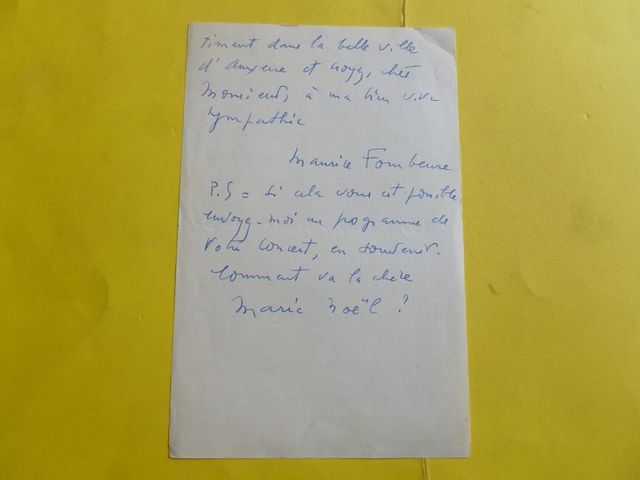 timent dans la belle ville
d'Auxerre et croyez, cher
Monsieur, à ma bien vive
sympathie
Maurice Fombeure
P.S = Si cela vous est possible
envoyez-moi un programme de
votre concert, en souvenir.
Comment va la chère
Marie Noël ?